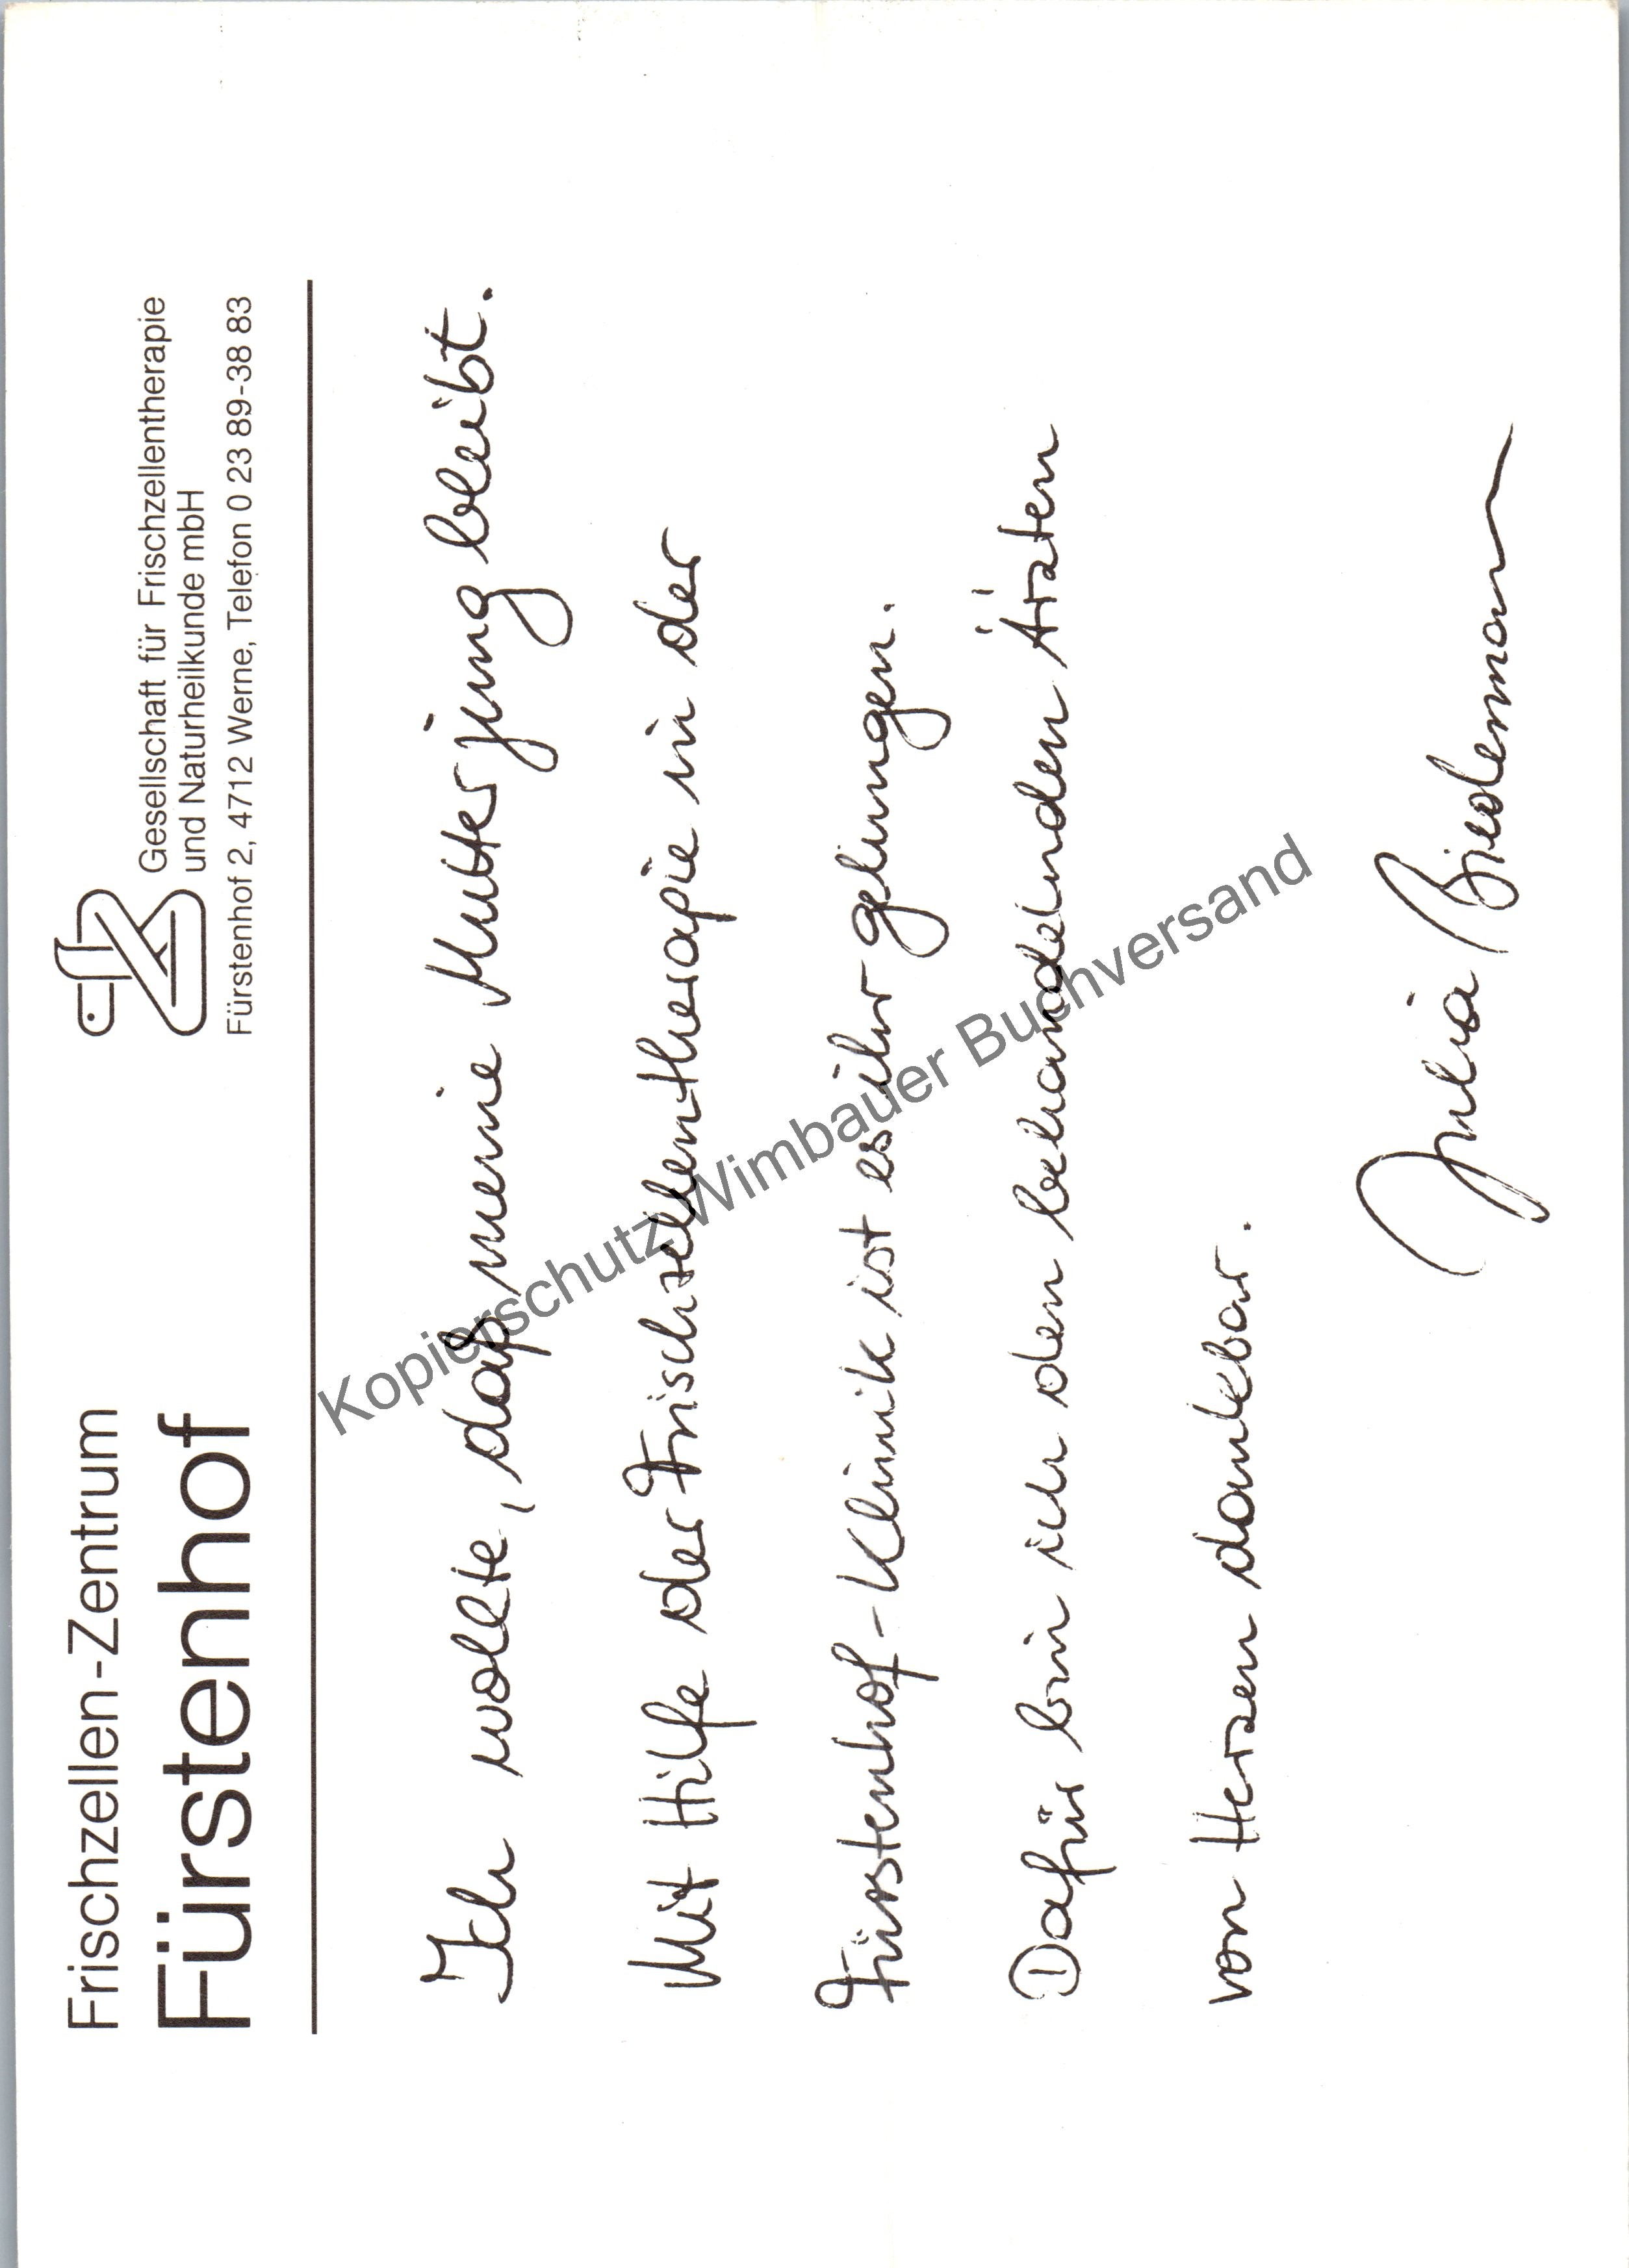 Frischzellen-Zentrum
Fürstenhof
Gesellschaft für Frischzellentherapie
und Naturheilkunde mbH
Fürstenhof 2, 4712 Werne, Telefon 0 23 89-38 83
Ich wollte, daß meine Mutter jung bleibt.
Mit Hilfe der Frischzellentherapie in der
Fürstenhof-Klinik ist es ihr gelungen.
Dafür bin ich den behandelnden Ärzten
von Herzen dankbar.
Julia Biedermann
Kopierschutz-Wimbauer Buchversand